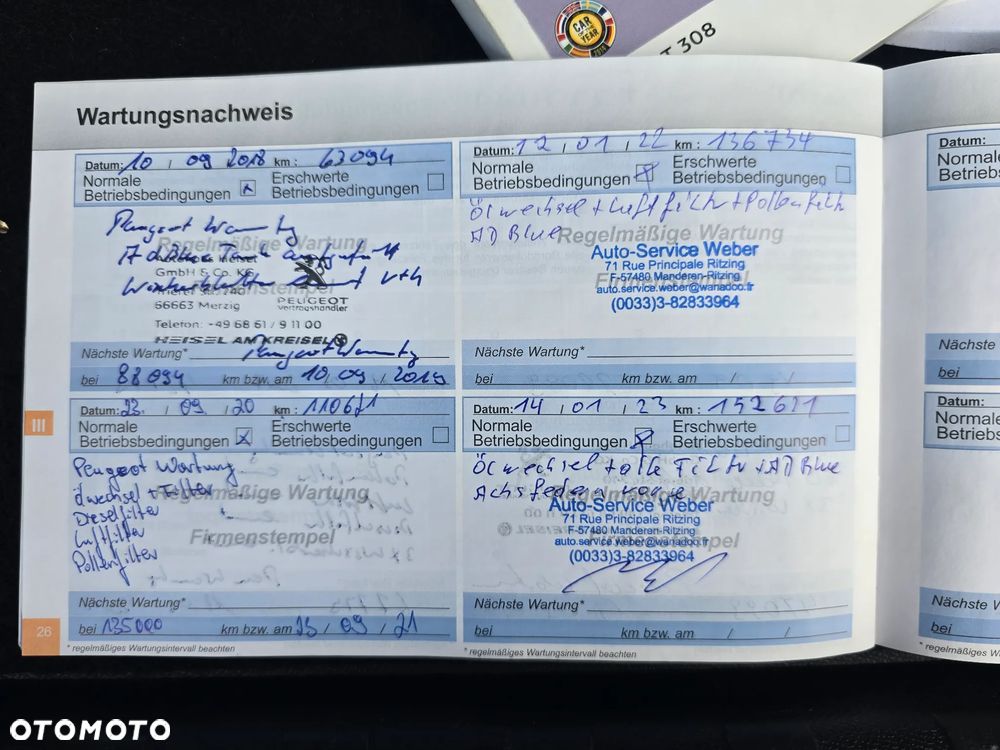 CAR
OF THE
YEAR
2014
T 308
Wartungsnachweis
Datum: 10 / 09 2018 km : 63094
Normale
Betriebsbedingungen
Erschwerte
Betriebsbedingungen
Peugeot Wartung
Regelmäßige Wartung
GmbH & Co. KG
Firmenstempel
66663 Merzig
PEUGEOT
Vertragshändler
Telefon: +49 68 61 / 9 11 00
HEISEL AM KREISEL
Nächste Wartung* Peugeot Wartung
bei 88094 km bzw. am 10 / 09 / 2019
Datum: 12 / 01 / 22 km : 136734
Normale
Betriebsbedingungen
Erschwerte
Betriebsbedingungen
Ölwechsel + Luftfilter + Pollenfilter
AD Blue
Regelmäßige Wartung
Auto-Service Weber
71 Rue Principale Ritzing
F-57480 Manderen-Ritzing
Firmenstempel
auto.service.weber@wanadoo.fr
(0033)3-82833964
Nächste Wartung*
bei km bzw. am / /
III
Datum: 23. / 09 / 20 km : 110671
Normale
Betriebsbedingungen
Erschwerte
Betriebsbedingungen
Peugeot Wartung
ölwechsel + Filter
Regelmäßige Wartung
Dieselfilter
Luftfilter
Firmenstempel
Pollenfilter
Nächste Wartung*
bei 135000 km bzw. am 23 / 09 / 21
Datum: 14 / 01 / 23 km : 152621
Normale
Betriebsbedingungen
Erschwerte
Betriebsbedingungen
Ölwechsel + alle Filter + AD Blue
Achsfedern vorne
Regelmäßige Wartung
Auto-Service Weber
71 Rue Principale Ritzing
F-57480 Manderen-Ritzing
Firmenstempel
auto.service.weber@wanadoo.fr
(0033)3-82833964
Nächste Wartung*
bei km bzw. am / /
26
* regelmäßiges Wartungsintervall beachten
* regelmäßiges Wartungsintervall beachten
Datum:
Normale
Betriebsb
Nächste
bei
Datum:
Normale
Betriebsb
Nächste W
bei
* regelmäßig
OTOMOTO